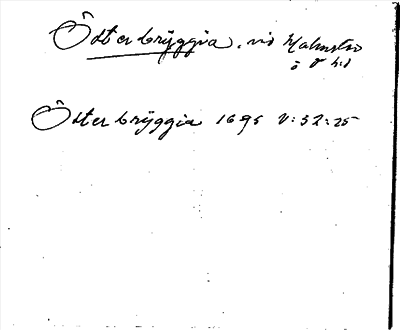 Österbryggia, vid Malmslso
ö V hd
Österbrÿggia 1695 V:52:25